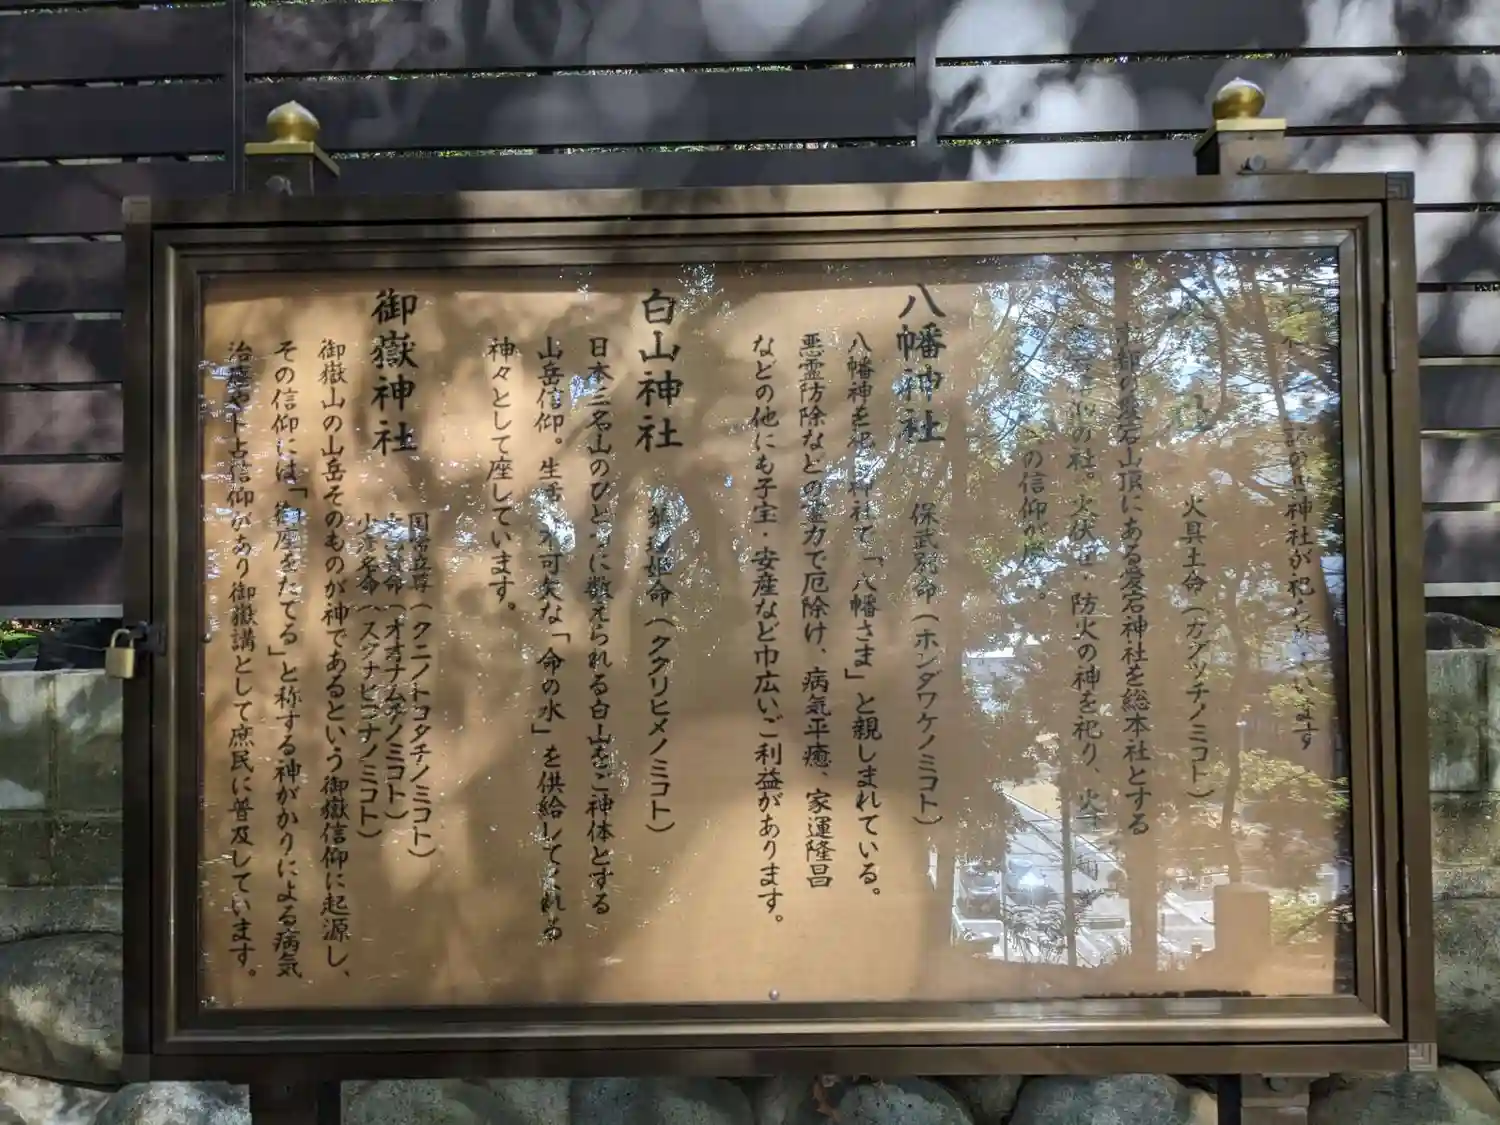 の神社が祀られています
火具土命(カグツチノミコト)
京都の愛宕山頂にある愛宕神社を総本社とする
の社。火伏せ・防火の神を祀り、火
の信仰が
八幡神社
保武別命(ホンダワケノミコト)
八幡神を祀る神社で「八幡さま」と親しまれている。
悪霊防除などの霊力で厄除け、病気平癒、家運隆昌
などの他にも子宝・安産など巾広いご利益があります。
白山神社
菊理姫命(ククリヒメノミコト)
日本三名山のひとつに数えられる白山をご神体とする
山岳信仰。生活に不可欠な「命の水」を供給してくれる
神々として座しています。
御嶽神社
国常立尊(クニノトコタチノミコト)
(オオナムチノミコト)
少彦名命(スクナヒコナノミコト)
御嶽山の山岳そのものが神であるという御嶽信仰に起源し、
その信仰には「御座をたてる」と称する神がかりによる病気
治癒や卜占信仰があり御嶽講として庶民に普及しています。